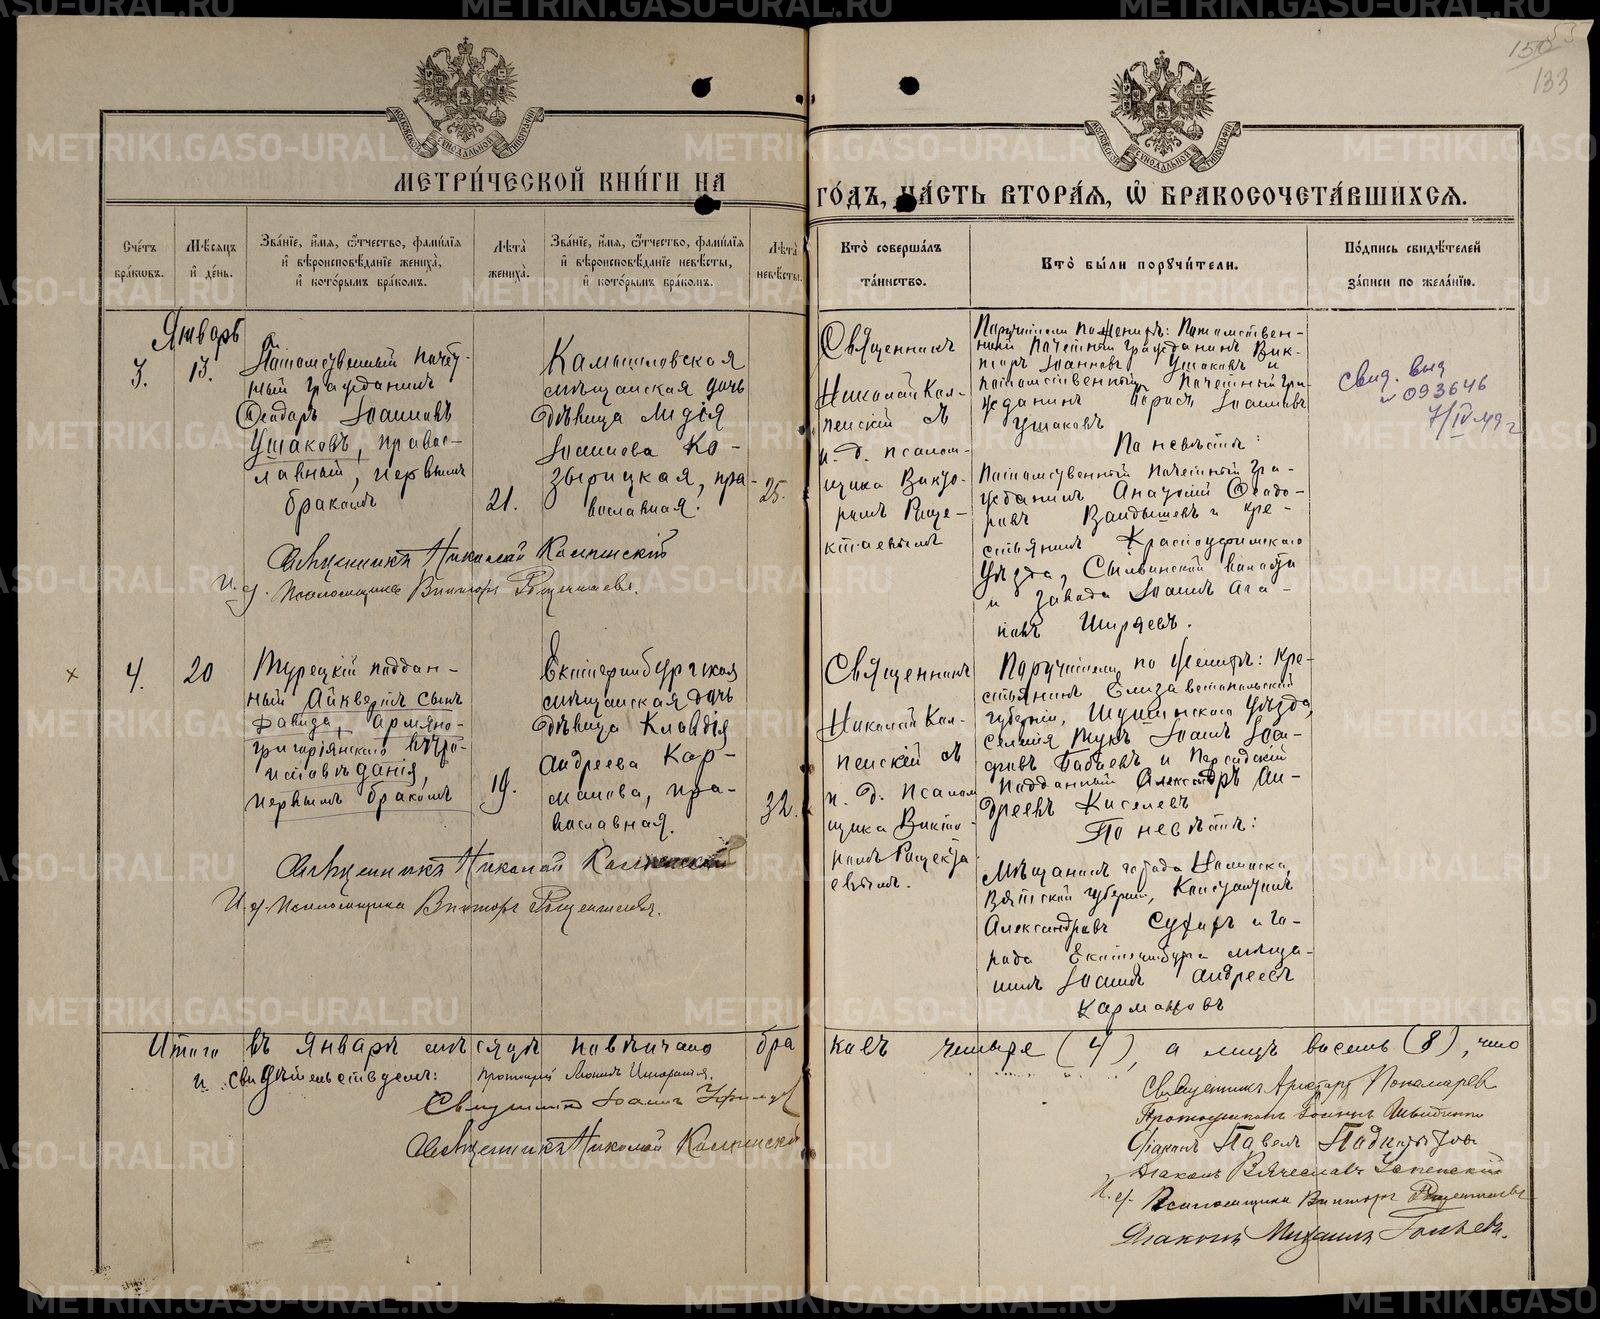 МЕТРИ́ЧЕСКОЙ КНИ́ГИ НА
ГО́ДЪ, ЧА́СТЬ ВТОРА́Я, Ѡ҆ БРАКОСОЧЕТА́ВШИХСЯ.
Сче́тъ бра́ковъ.
Мѣ́сяцъ и҆ де́нь.
Зва́нїе, и҆́мя, ѻ҆́тчество, фами́лїя и҆ вѣроисповѣ́данїе жениха̀, и҆ кото́рымъ бра́комъ.
Лѣта̀ жениха̀.
Зва́нїе, и҆́мя, ѻ҆́тчество, фами́лїя и҆ вѣроисповѣ́данїе невѣ́сты, и҆ кото́рымъ бра́комъ.
Лѣта̀ невѣ́сты.
Кто̀ соверша́лъ та́инство.
Кто̀ бы́ли порꙋчи́тели.
По́дпись свидѣ́телей за́писи по жела́нїю.
133
Январь
3.
13.
Потомственный почет-
ный гражданинъ
Ѳеодоръ Іоанновъ
Ушаковъ, правос-
лавный, первымъ
бракомъ
21.
Камышловская
мѣщанская дочь
дѣвица Лидія
Іоаннова Ко-
зырицкая, пра-
вославная.
25.
Священникъ
Николай Кал-
пенскій съ
и. д. псалом-
щика Викто-
ромъ Роще-
ктаевымъ
Поручители по женихѣ: Потомствен-
ный почетный гражданинъ Вик-
торъ Іоанновъ Ушаковъ и
потомственный почетный гра-
жданинъ Борисъ Іоанновъ
Ушаковъ
По невѣстѣ:
Потомственный почетный гра-
жданинъ Анатолій Ѳеодо-
ровъ Вандышевъ и кре-
стьянинъ Красноуфимскаго
уѣзда, Сылвинской волости
и завода Іоаннъ Ага-
повъ Ширяевъ.
свид. выд
№ 093646
7/IV-49 г
Священникъ Николай Калпенскій
И. д. Псаломщика Викторъ Рощектаевъ.
4.
20
Турецкій поддан-
ный Айкверъ сынъ
Давида, армяно-
григоріянскаго вѣро-
исповѣданія,
первымъ бракомъ
19.
Екатеринбургская
мѣщанская дочь
дѣвица Клавдія
Андреева Кар-
манова, пра-
вославная.
32.
Священникъ
Николай Кал-
пенскій съ
и. д. псалом
щика Викто-
ромъ Рощекта
евымъ.
Поручители по женихѣ: кре-
стьянинъ Елизаветпольской
губерніи, Шушинскаго уѣзда,
селенія Тукъ Іоаннъ Іоси-
фовъ Бабаевъ и Персидскій
подданный Александръ Ан-
дреевъ Киселевъ
По невѣстѣ:
Мѣщанинъ города Нолинска,
Вятской губерніи, Константинъ
Александровъ и го-
рода Екатеринбурга мѣща-
нинъ Іоаннъ Андреевъ
Кармановъ
Священникъ Николай Калпенскій
И. д. Псаломщика Викторъ Рощектаевъ.
Итого въ Январѣ мѣсяцѣ повѣнчано бра
ковъ четыре (4), а лицъ восемь (8), что
и свидѣтельствуемъ:
Протоіерей
Священникъ Іоаннъ
Священникъ Николай Калпенскій
Священникъ Аристархъ Пономаревъ
Протодіаконъ
Діаконъ Павелъ
Діаконъ Вячеславъ Успенскій
И. д. Псаломщика Викторъ Рощектаевъ
Діаконъ Михаилъ